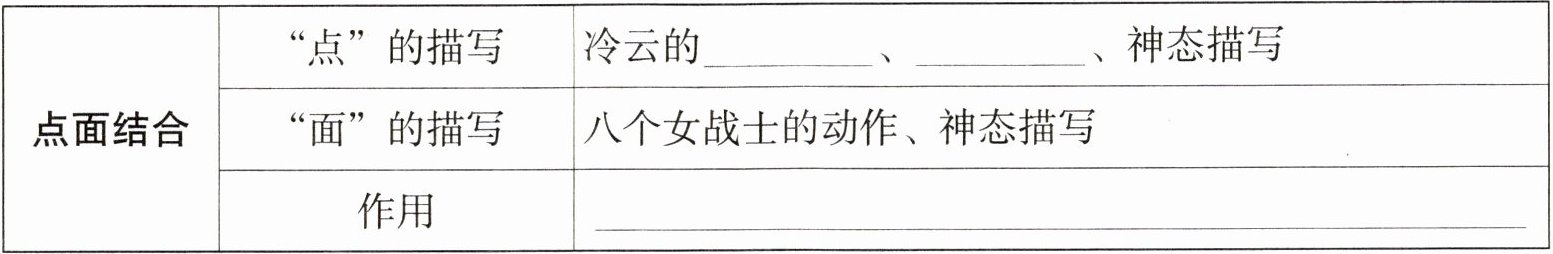 点面结合
“点”的描写 冷云的________、________、神态描写
“面”的描写 八个女战士的动作、神态描写
作用 ________________